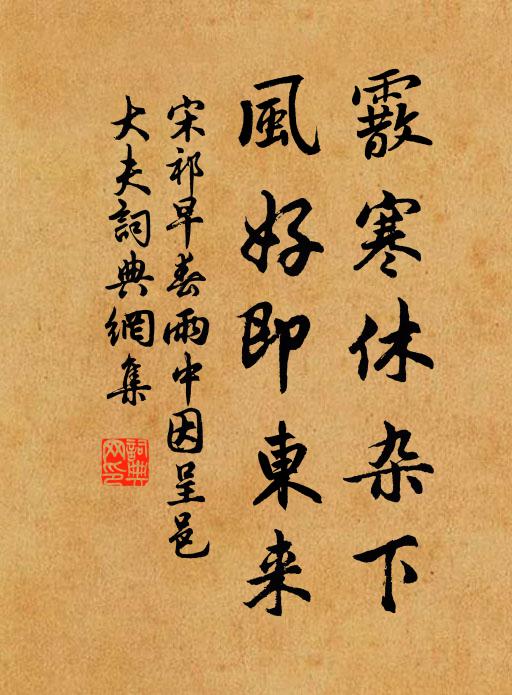 霰寒休杂下
風好即東来
宋祁早春雨中因呈邑
大夫詞典網集
詞典网印